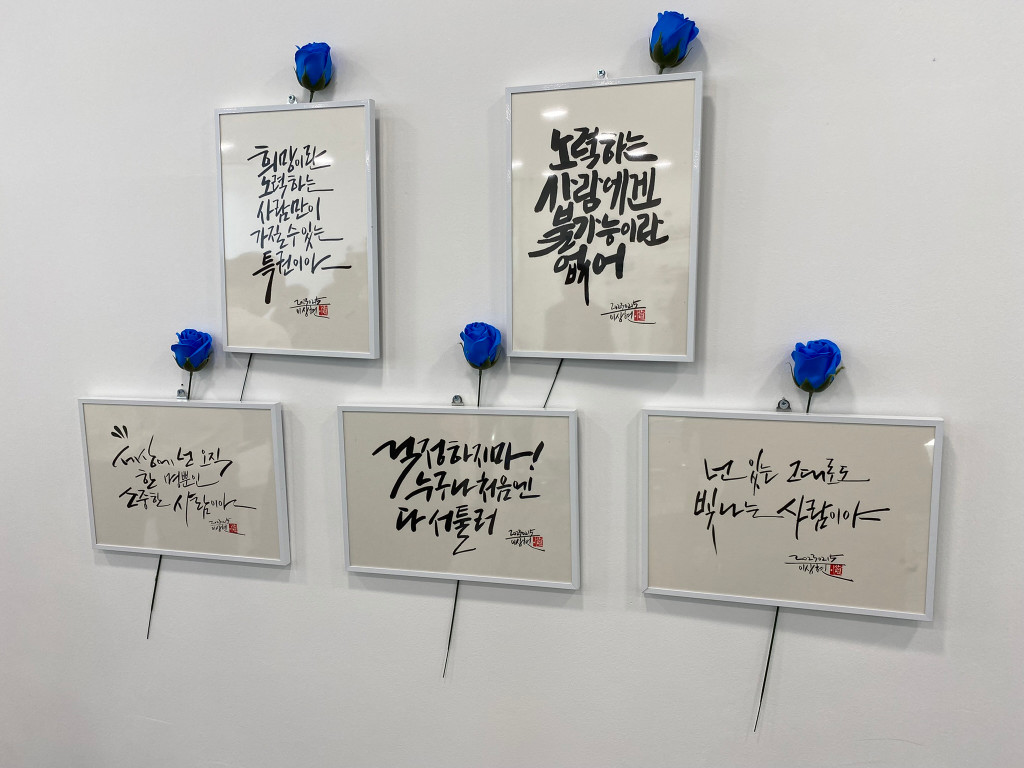 희망이란
노력하는
사람만이
가질 수 있는
특권이야
20230215
이상현
노력하는
사람에겐
불가능이란
없어
20230215
이상현
세상에 넌 오직
한 명뿐인
소중한 사람이야
20230215
이상현
걱정하지마!
누구나 처음엔
다 서툴러
20230215
이상현
넌 있는 그대로도
빛나는 사람이야
20230215
이상현